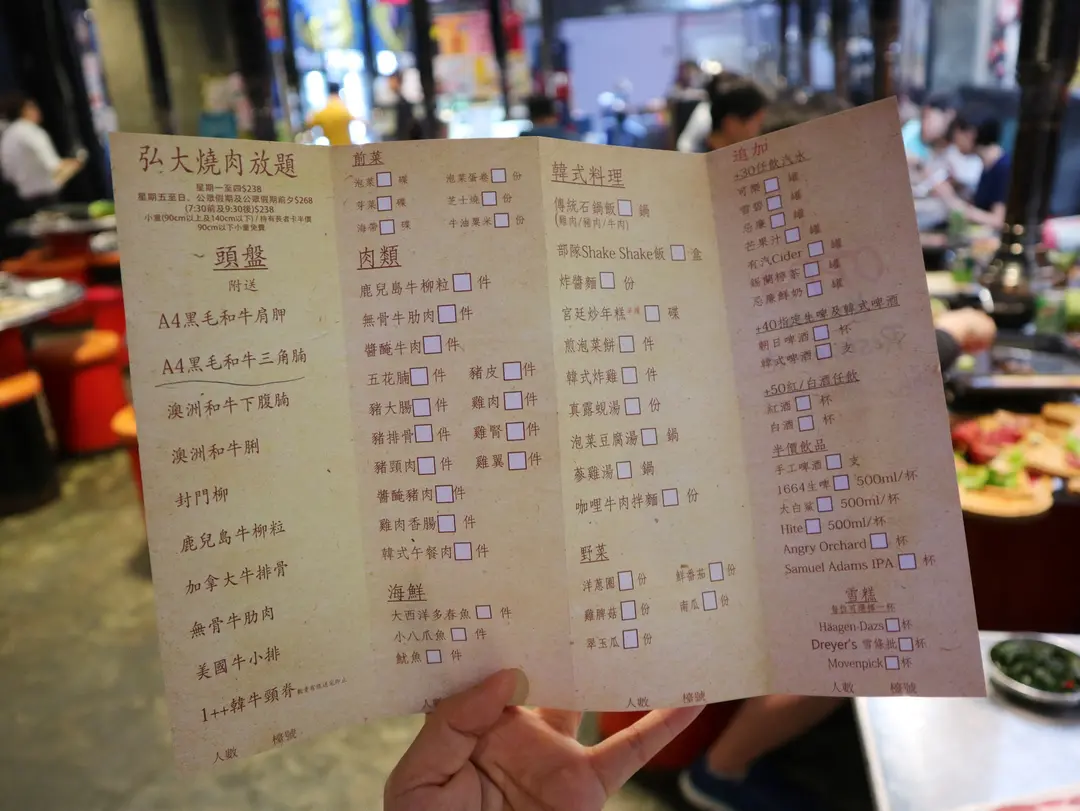 弘大燒肉放題
星期一至四$238
星期五至日、公眾假期及公眾假期前夕$268
(7:30前及9:30後)$238
小童(90cm以上及140cm以下)/持有長者卡半價
90cm以下小童免費
頭盤
附送
A4黑毛和牛肩胛
A4黑毛和牛三角腩
澳洲和牛下腹腩
澳洲和牛脷
封門柳
鹿兒島牛柳粒
加拿大牛排骨
無骨牛肋肉
美國牛小排
1++韓牛頸脊
人數 檯號
前菜
泡菜 碟 泡菜蛋卷 份
芽菜 碟 芝士燒 份
海帶 碟 牛油粟米 份
肉類
鹿兒島牛柳粒 件
無骨牛肋肉 件
醬醃牛肉 件
五花腩 件 豬皮 件
豬大腸 件 雞肉 件
豬排骨 件 雞腎 件
豬頸肉 件 雞翼 件
醬醃豬肉 件
雞肉香腸 件
韓式午餐肉 件
海鮮
大西洋多春魚 件
小八爪魚 件
魷魚 件
韓式料理
傳統石鍋飯 鍋
(雞肉/豬肉/牛肉)
部隊Shake Shake飯 盒
炸醬麵 份
宮廷炒年糕 碟
煎泡菜餅 件
韓式炸雞 件
真露蜆湯 份
泡菜豆腐湯 鍋
蔘雞湯 鍋
咖哩牛肉拌麵 份
野菜
洋蔥圈 份 鮮番茄 份
雞脾菇 份 南瓜 份
翠玉瓜 份
人數 檯號
追加
+30任飲汽水
可樂 罐
雪碧 罐
忌廉 罐
芒果汁 罐
有汽Cider 罐
錫蘭檸茶 罐
忌廉鮮奶 罐
+40指定生啤及韓式啤酒
朝日啤酒 杯
韓式啤酒 支
+50紅/白酒任飲
紅酒 杯
白酒 杯
半價飲品
手工啤酒 支
1664生啤 500ml/杯
大白鯊 500ml/杯
Hite 500ml/杯
Angry Orchard 杯
Samuel Adams IPA 杯
雪糕
每位可選擇一杯
Häagen-Dazs 杯
Dreyer's 雪條批 杯
Movenpick 杯
人數 檯號